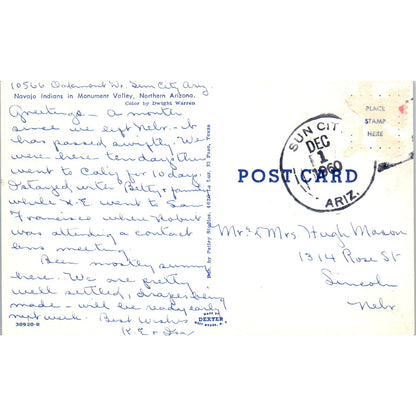 10566 Oakmont Dr. Sun City Ariz.
Navajo Indians in Monument Valley, Northern Arizona.
Color by Dwight Warren
Greetings - A month
since we left Nebr. - It
has passed swiftly. We
were here ten days then
went to Calif for 10 days.
I stayed with Betty & family
while K.E. went to San
Francisco where Robert
was attending a contact
lens meeting
Been mostly sunny
here. We are pretty
well settled, drapes being
made - will be ready early
next week. Best Wishes
K.E. & Iva
30920-B
Dist. by Petley Studios, El Paso, Texas
MADE BY
DEXTER
WEST NYACK, N.Y.
POST CARD
PLACE
STAMP
HERE
SUN CITY
DEC
1
1960
ARIZ.
Mr. & Mrs Hugh Mason
1314 Rose St
Lincoln
Nebr.